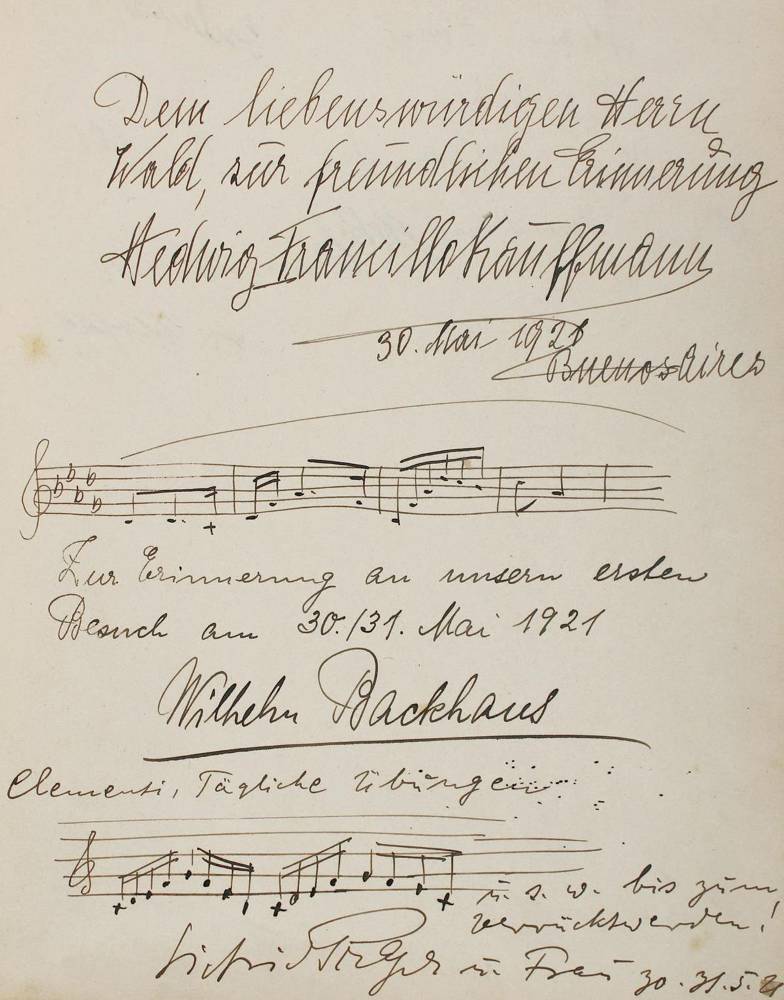 Dem liebenswürdigen Herrn
Wald, zur freundlichen Erinnerung
Hedwig Francillo Kauffmann
30. Mai 1921
Buenos Aires
Zur Erinnerung an unsern ersten
Besuch am 30./31. Mai 1921
Wilhelm Backhaus
Clementi, Tägliche Übungen
u. s. w. bis zum
verrücktwerden!
u. Frau 30. 31. 5. 21